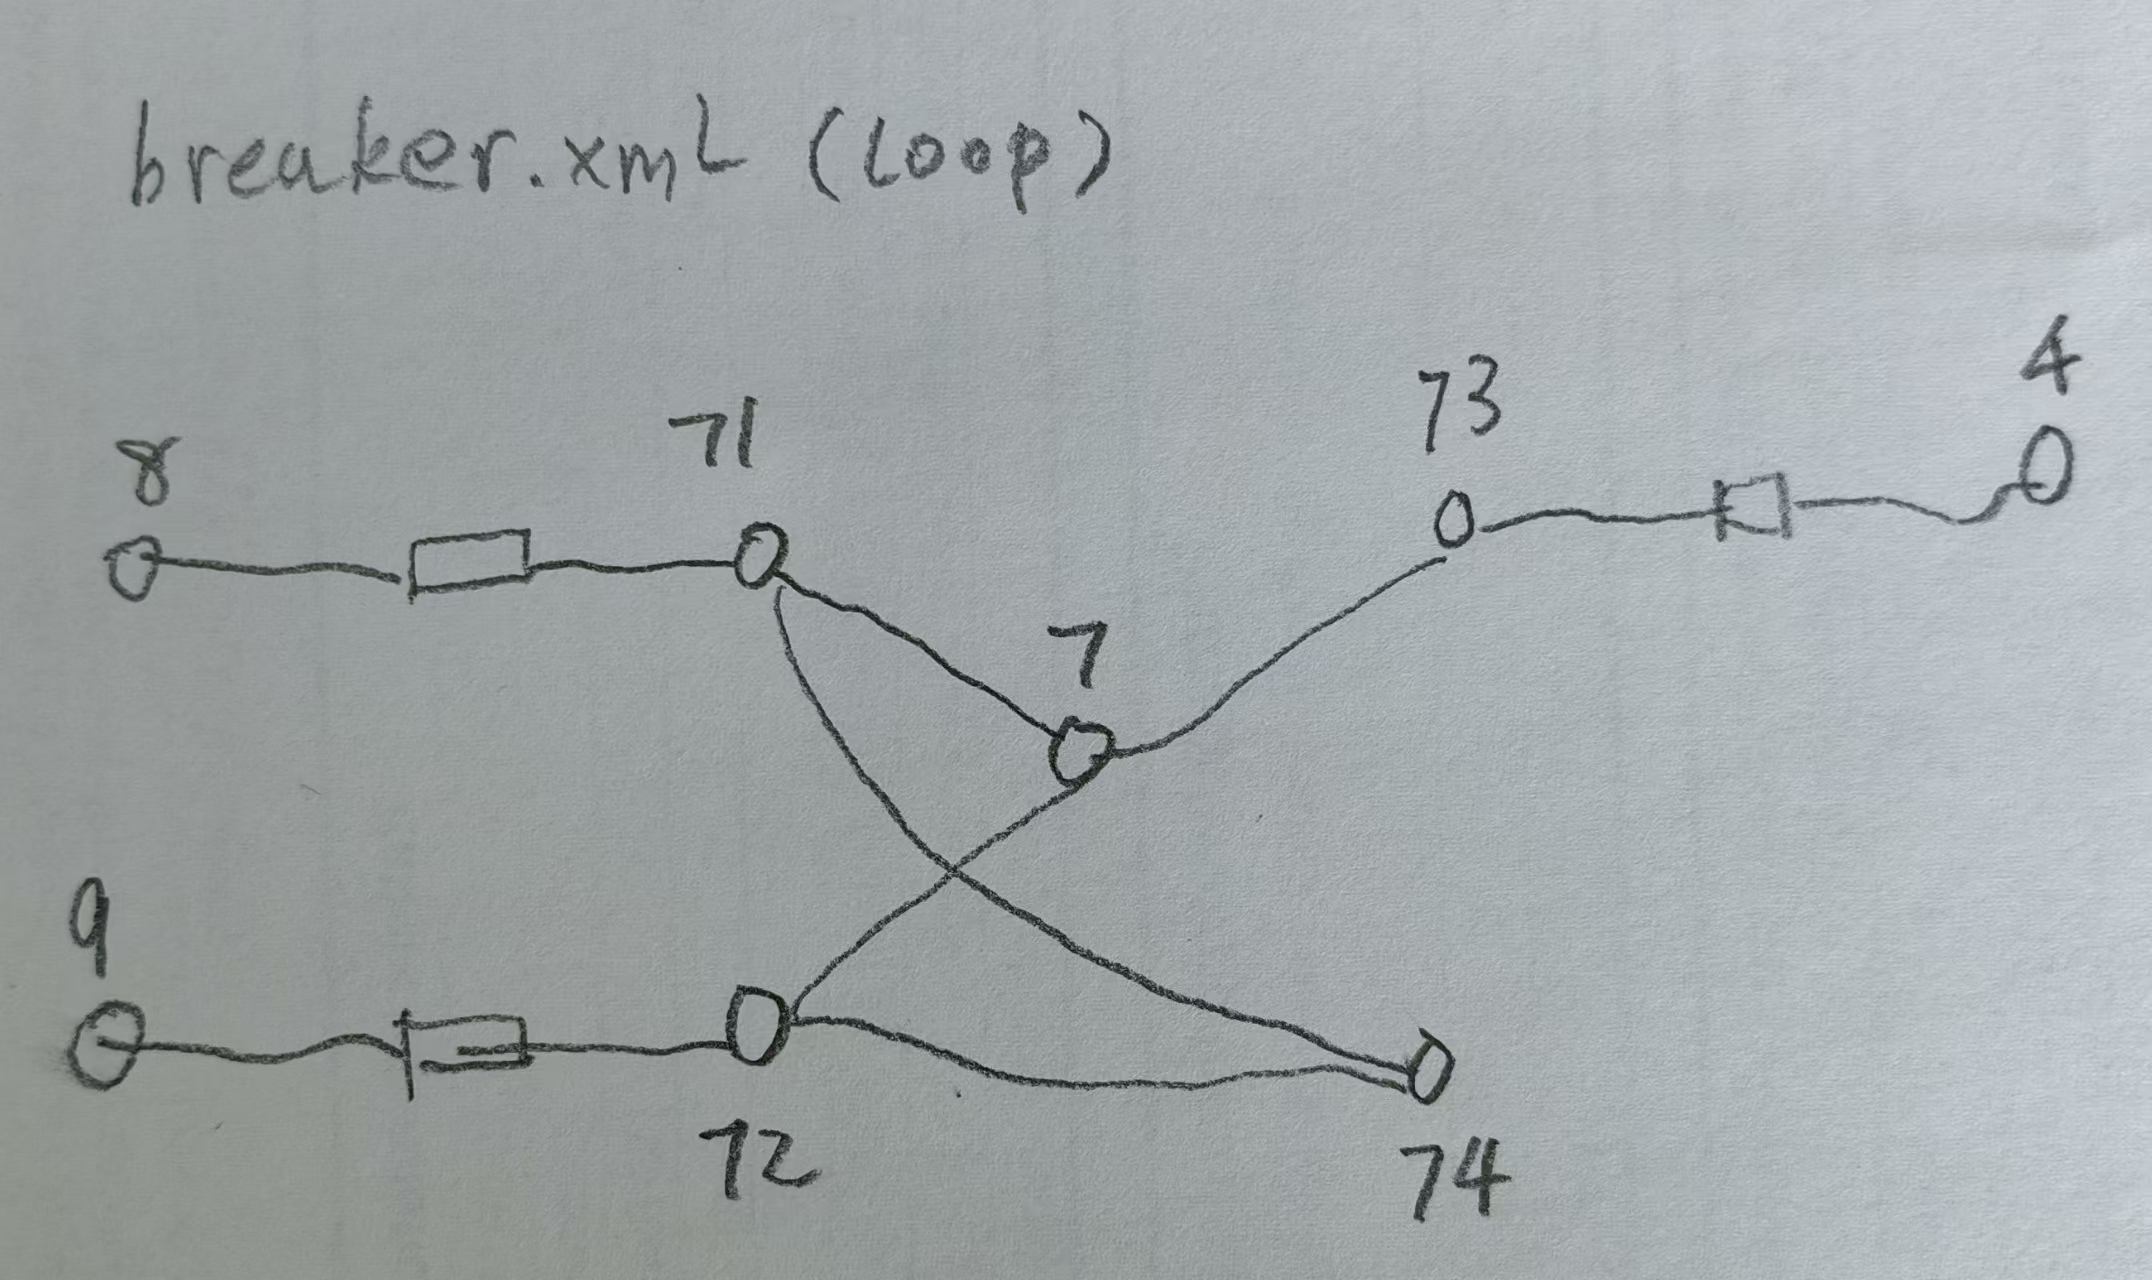 breaker.xml (loop)
4
73
71
8
7
9
72
74